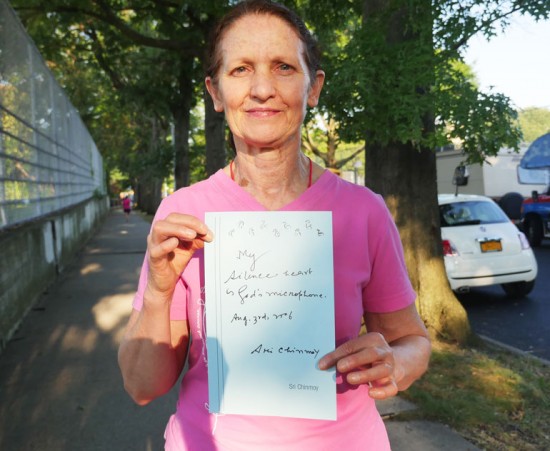 My
Silence-heart
is God's microphone.
Aug. 3rd,
Sri Chinmoy
Sri Chinmoy